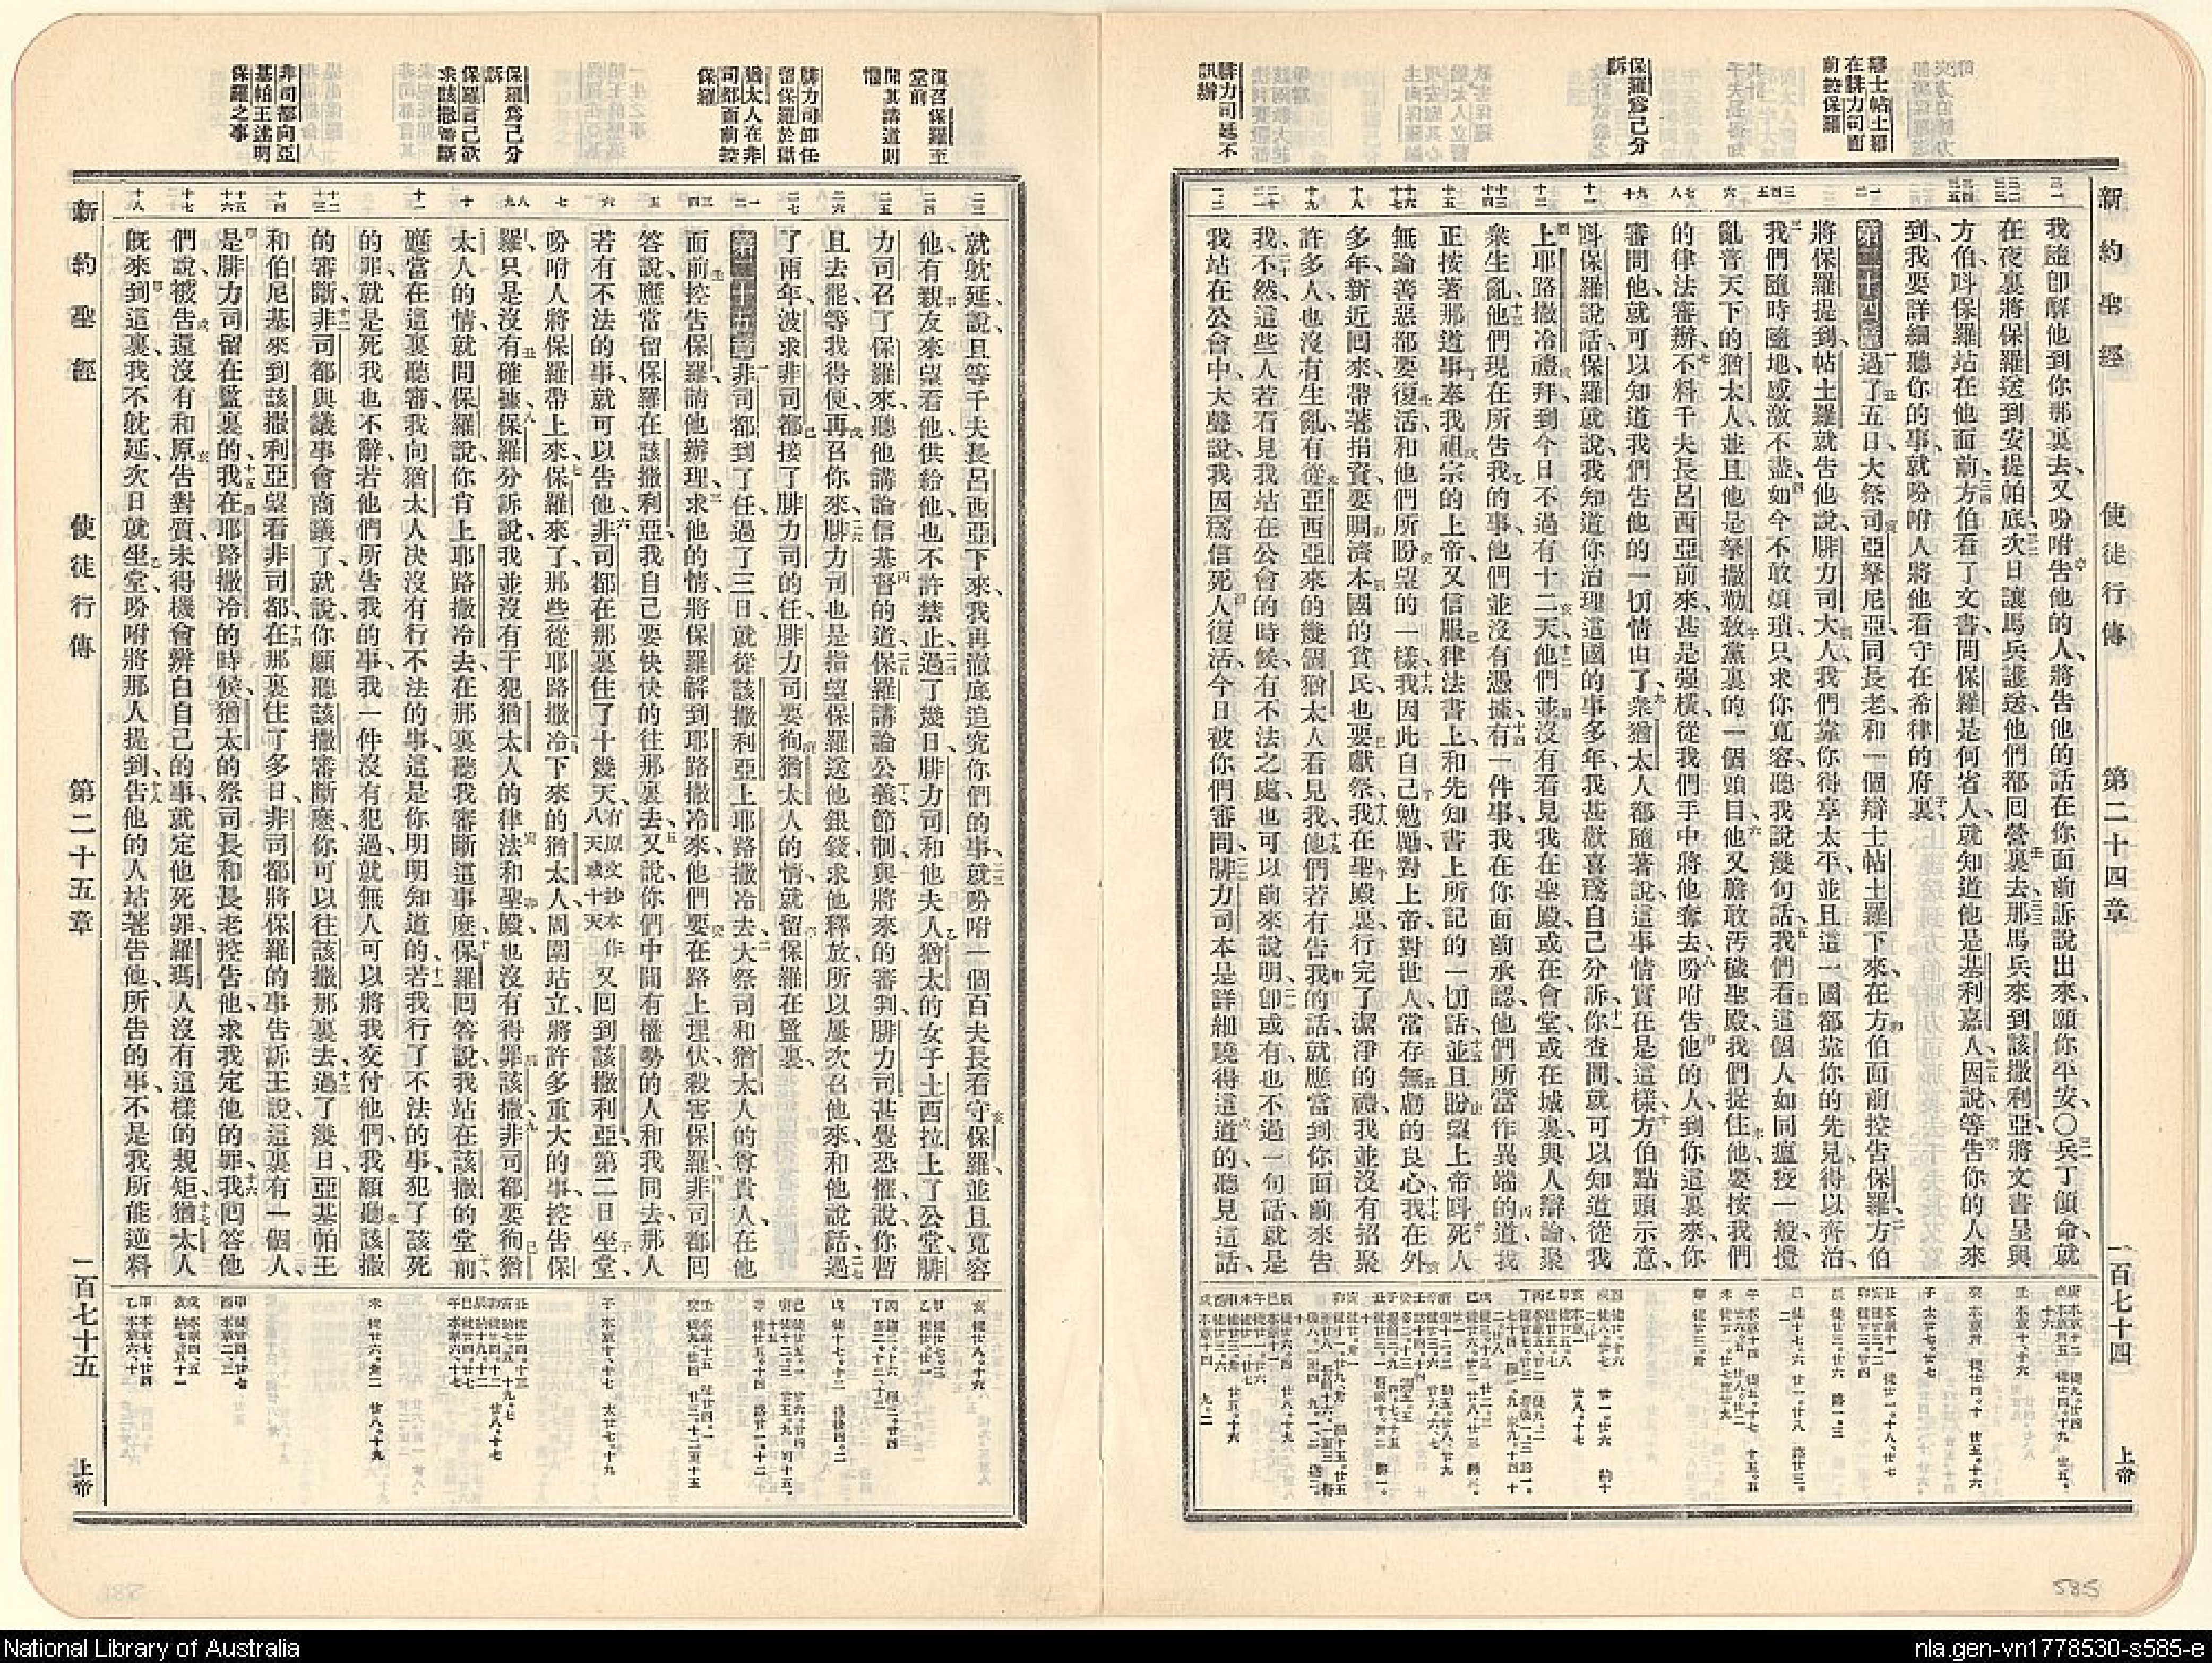 新約聖經　使徒行傳　第二十四章　一百七十四　上帝
辯士帖土羅
在腓力司面
前控告保羅
保羅爲己分
訴
腓力司延不
訊辦
我隨卽解他到你那裏去、又吩咐告他的人、將告他的話在你面前訴說出來、願你平安、〇兵丁領命、就
在夜裏將保羅送到安提帕底、次日讓馬兵護送、他們都回營裏去、那馬兵來到該撒利亞、將文書呈與
方伯、叫保羅站在他面前、方伯看了文書、問保羅是何省人、就知道他是基利嘉人、因說、等告你的人來
到、我要詳細聽你的事、就吩咐人將他看守在希律的府裏、
第二十四章　過了五日、大祭司亞拏尼亞同長老、和一個辯士帖土羅下來、在方伯面前控告保羅、方伯
將保羅提到、帖土羅就告他說、腓力司大人、我們靠你得享太平、並且這一國都靠你的先見得以齊治、
我們隨時隨地感激不盡、如今不敢煩瑣、只求你寬容聽我說幾句話、我們看這個人、如同瘟疫一般、攪
亂普天下的猶太人、並且他是拏撒勒敎黨裏的一個頭目、他又膽敢汚穢聖殿、我們捉住他、要按我們
的律法審辦、不料千夫長呂西亞前來、甚是强橫、從我們手中將他奪去、吩咐告他的人到你這裏來、你
審問他、就可以知道我們告他的一切情由了、衆猶太人都隨著說、這事情實在是這樣、方伯點頭示意、
叫保羅說話、保羅就說、我知道你治理這國的事多年、我甚歡喜爲自己分訴、你查問就可以知道、從我
上耶路撒冷禮拜、到今日不過有十二天、他們並沒有看見我在聖殿、或在會堂、或在城裏、與人辯論、聚
衆生亂、他們現在所告我的事、他們並沒有憑據、有一件事我在你面前承認、他們所當作異端的道、我
正按著那道事奉我祖宗的上帝、又信服律法書上和先知書上所記的一切話、並且盼望上帝叫死人
無論善惡都要復活、和他們所盼望的一樣、我因此自己勉勵、對上帝對世人、常存無虧的良心、我在外
多年、新近回來、帶著捐資、要賙濟本國的貧民、也要獻祭、我在聖殿裏行完了潔淨的禮、我並沒有招聚
許多人、也沒有生亂、有從亞西亞來的幾個猶太人看見我、他們若有告我的話、就應當到你面前來告
我、不然、這些人若看見我站在公會的時候、有不法之處、也可以前來說明、卽或有、也不過一句話、就是
我站在公會中大聲說、我因爲信死人復活、今日被你們審問、腓力司本是詳細曉得這道的、聽見這話、
新約聖經　使徒行傳　第二十五章　一百七十五　上帝
復召保羅至
堂前
聞其講道則
懼
腓力司卸任
留保羅於獄
猶太人在非
司都面前控
保羅
保羅爲己分
訴
保羅言己欲
求該撒審斷
非司都向亞
基帕王述明
保羅之事
就躭延、說、且等千夫長呂西亞下來、我再澈底追究你們的事、就吩咐一個百夫長看守保羅、並且寬容
他、有親友來望看他、供給他、也不許禁止、過了幾日、腓力司和他夫人猶太的女子土西拉、上了公堂、腓
力司召了保羅來、聽他講論信基督的道、保羅講論公義、節制、與將來的審判、腓力司甚覺恐懼、說、你暫
且去罷、等我得便再召你來、腓力司也是指望保羅送他銀錢、求他釋放、所以屢次召他來、和他說話、過
了兩年、波求非司都接了腓力司的任、腓力司要徇猶太人的情、就留保羅在監裏、
第二十五章　非司都到了任、過了三日、就從該撒利亞上耶路撒冷去、大祭司和猶太人的尊貴人、在他
面前控告保羅、請他辦理、求他的情、將保羅解到耶路撒冷來、他們要在路上埋伏殺害保羅、非司都回
答說、應當留保羅在該撒利亞、我自己要快快的往那裏去、又說、你們中間有權勢的人和我同去、那人
若有不法的事、就可以告他、非司都在那裏住了十幾天、有原文抄本作八天或十天又回到該撒利亞、第二日坐堂、
吩咐人將保羅帶上來、保羅來了、那些從耶路撒冷下來的猶太人、周圍站立、將許多重大的事控告保
羅、只是沒有確據、保羅分訴說、我並沒有干犯猶太人的律法和聖殿、也沒有得罪該撒、非司都要徇猶
太人的情、就問保羅說、你肯上耶路撒冷去、在那裏聽我審斷這事麼、保羅回答說、我站在該撒的堂前、
應當在這裏聽審、我向猶太人決沒有行不法的事、這是你明明知道的、若我行了不法的事、犯了該死
的罪、就是死我也不辭、若他們所告我的事、我一件沒有犯過、就無人可以將我交付他們、我願聽該撒
的審斷、非司都與議事會商議了、就說、你願聽該撒審斷麼、你可以往該撒那裏去、過了幾日、亞基帕王
和伯尼基來到該撒利亞、望看非司都、在那裏住了多日、非司都將保羅的事告訴王說、這裏有一個人、
是腓力司留在監裏的、我在耶路撒冷的時候、猶太的祭司長和長老控告他、求我定他的罪、我回答他
們說、被告還沒有和原告對質、未得機會辨白自己的事、就定他死罪、羅瑪人沒有這樣的規矩、猶太人
旣來到這裏、我不躭延、次日就坐堂、吩咐將那人提到、告他的人站著告他、所告的事、不是我所能逆料
585
National Library of Australia
nla.gen-vn1778530-s585-e